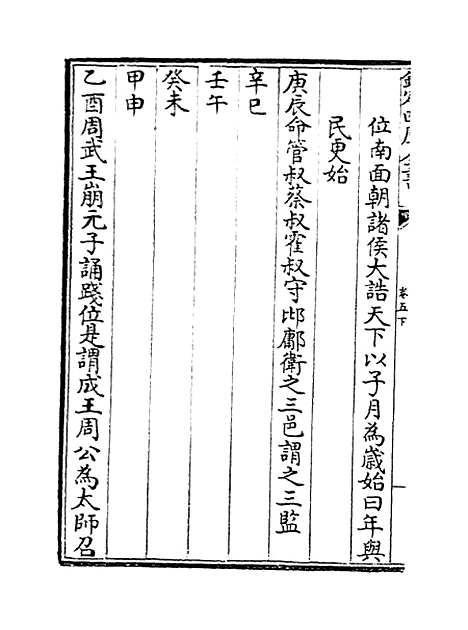 欽定四庫全書
卷五下
位南面朝諸侯大誥天下以子月為歲始曰年與
民更始
庚辰命管叔蔡叔霍叔守邶鄘衛之三邑謂之三監
辛巳
壬午
癸未
甲申
乙酉周武王崩元子誦踐位是謂成王周公為太師召